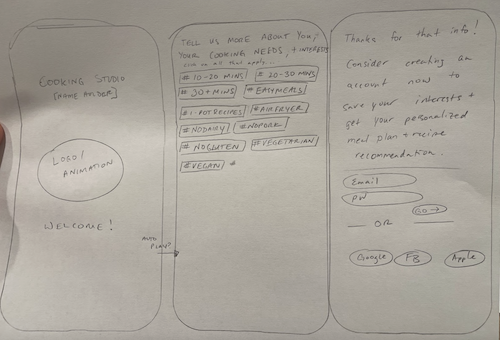 COOKING STUDIO
[NAME HOLDER]
LOGO/
ANIMATION
WELCOME!
AUTO
PLAY?
TELL US MORE ABOUT YOU,
YOUR COOKING NEEDS, + INTERESTS
click on all that apply...
# 10-20 MINS
# 20-30 MINS
# 30+ MINS
# EASYMEALS
# 1-POT RECIPES
# AIRFRYER
# NODAIRY
# NOPORK
# NOGLUTEN
# VEGETARIAN
# VEGAN
#
Thanks for that info!
Consider creating an
account now to
save your interests +
get your personalized
meal plan + recipe
recommendation.
Email
PW
GO →
OR
Google
FB
Apple